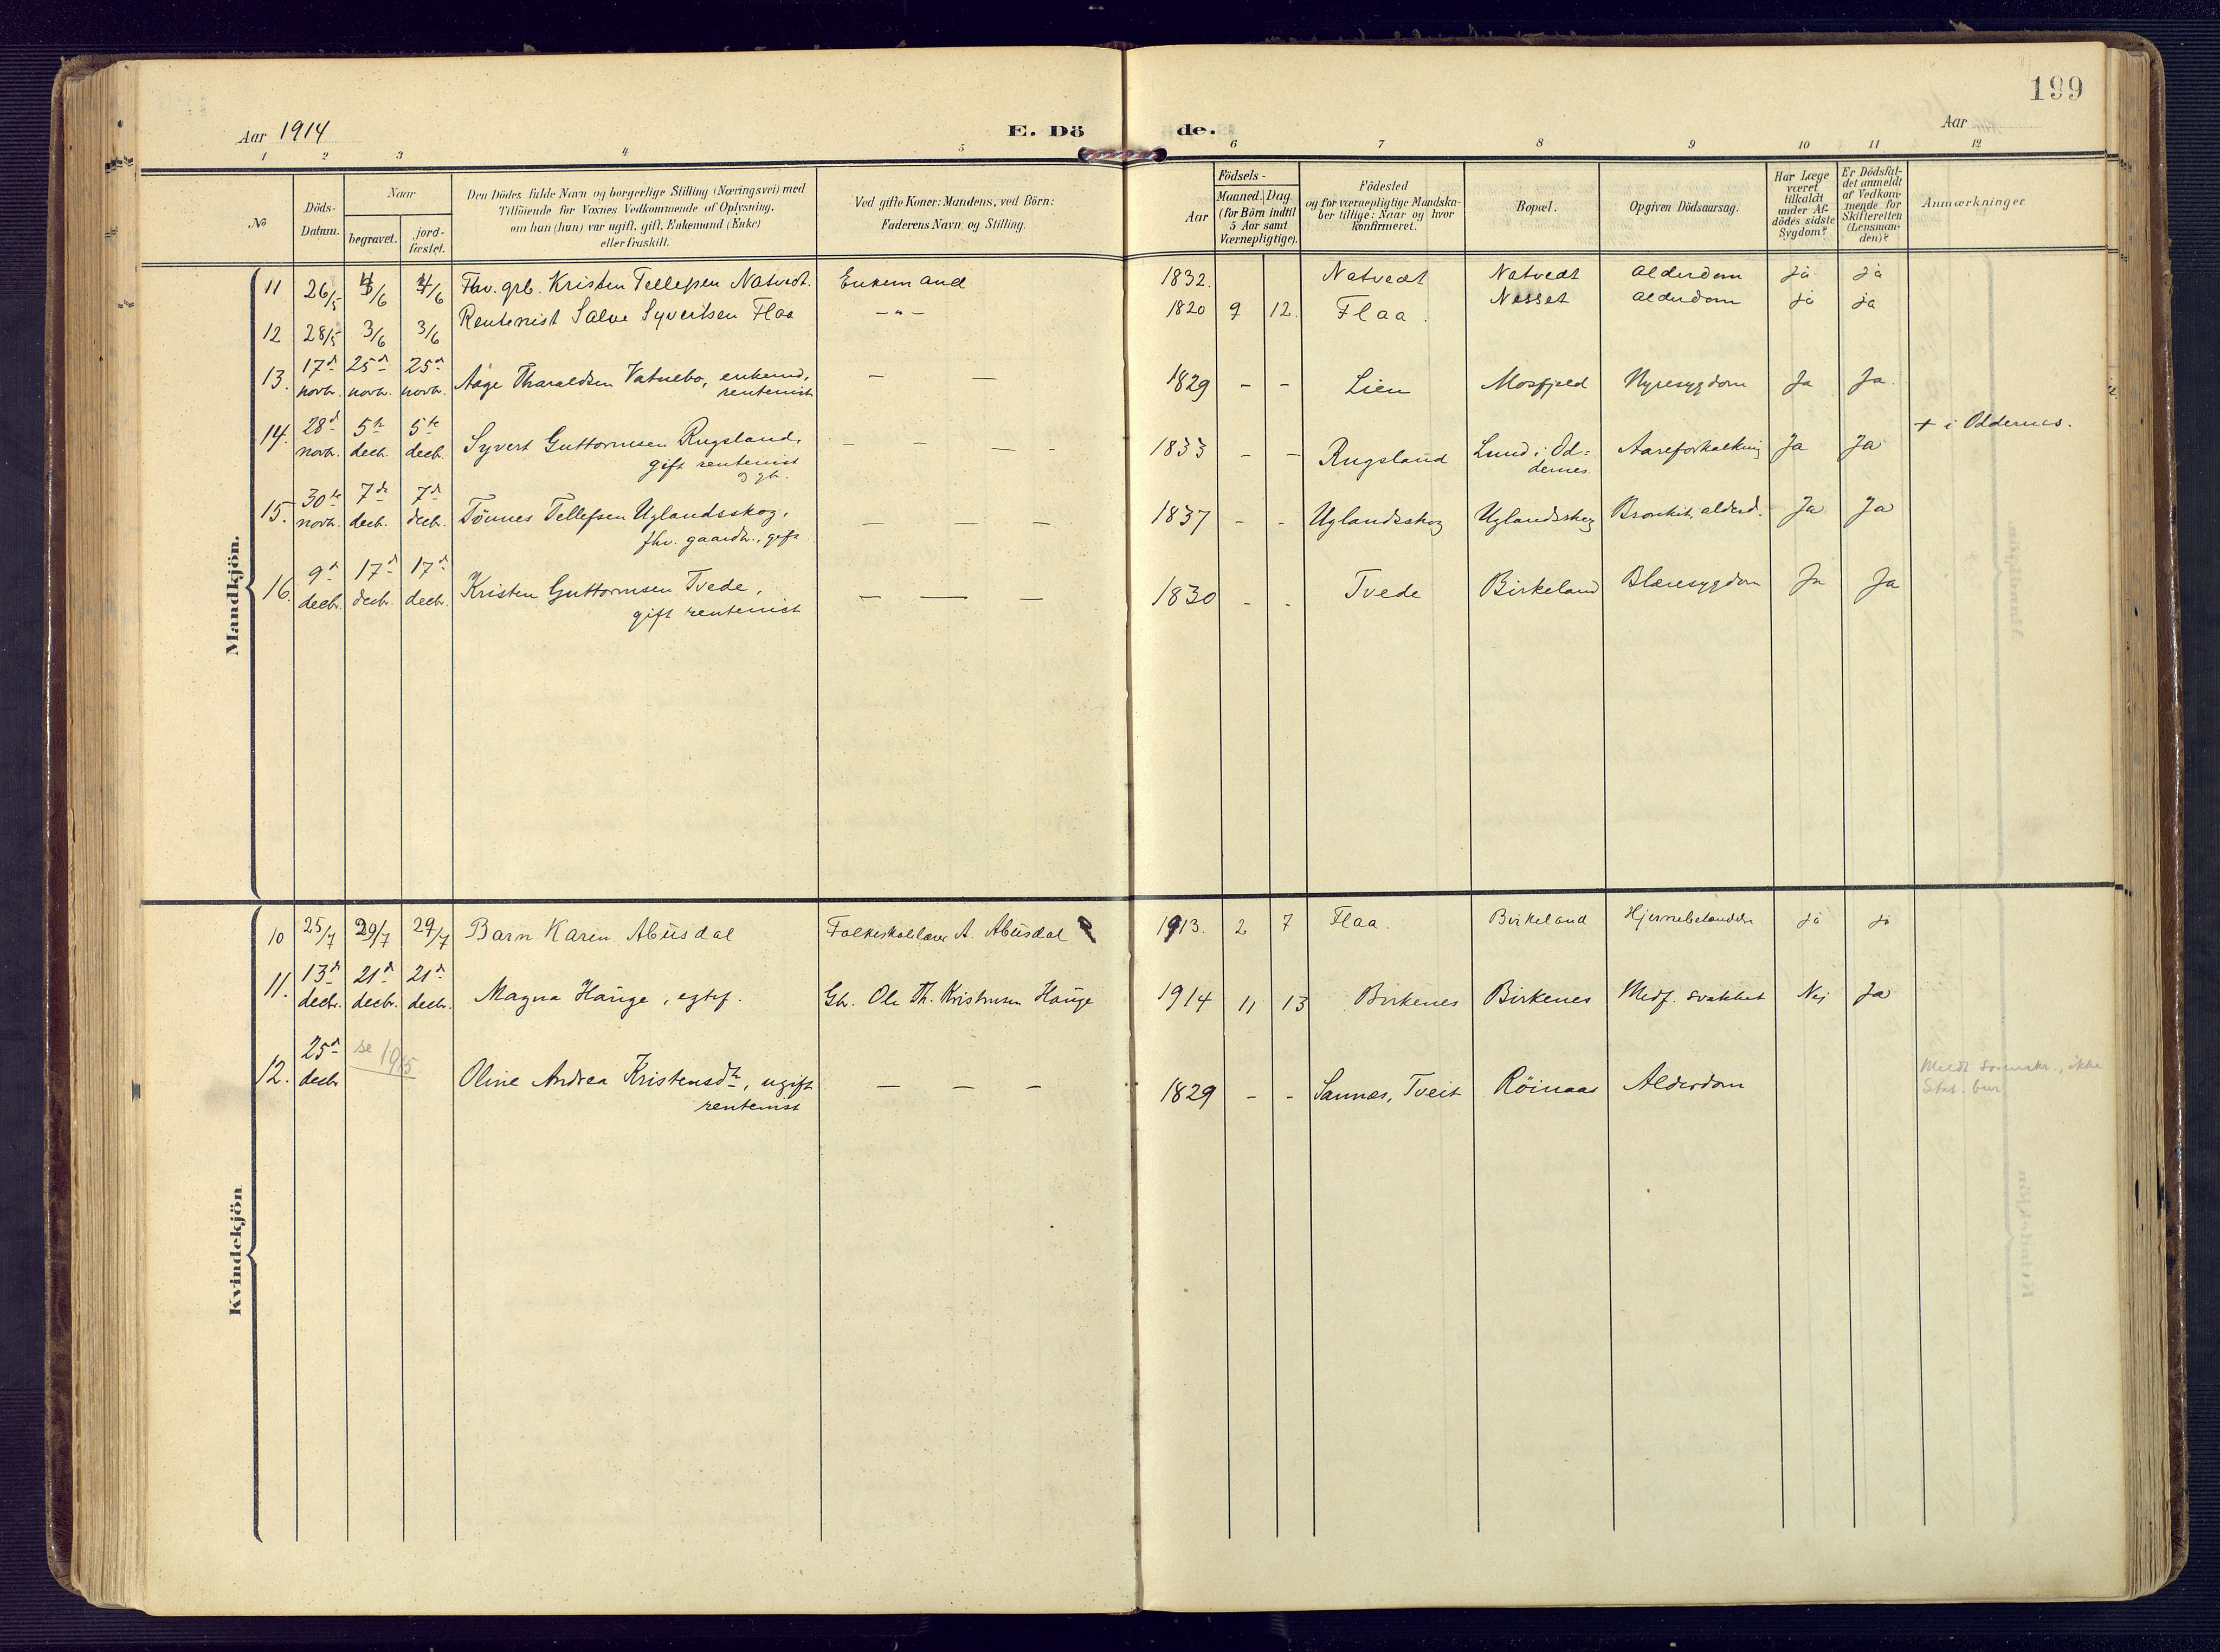 199
Aar 1914
E. Dö de.
Aar
1 2 3 4 5 6 7 8 9 10 11 12
No
Döds-
Datum.
Naar
begravet.
jord-
fæstet.
Den Dödes fulde Navn og borgerlige Stilling (Næringsvei) med
Tilföiende for Voxnes Vedkommende af Oplysning,
om han (hun) var ugift, gift, Enkemand (Enke)
eller fraskilt.
Ved gifte Koner: Mandens, ved Börn:
Faderens Navn og Stilling.
Födsels-
Aar
Maaned. Dag.
(for Börn indtil
5 Aar samt
Værnepligtige).
Födested
og for værnepligtige Mandska-
ber tillige: Naar og hvor
konfirmeret.
Bopæl.
Opgiven Dödsaarsag.
Har Læge
været
tilkaldt
under Af-
dödes sidste
Sygdom?
Er Dödsfal-
det anmeldt
af Vedkom-
mende for
Skifteretten
(Lensman-
den)?
Anmærkninger
Mandkjön.
11 26/5 4/6 4/6 Fhv. grb. Kristen Tellefsen Natvedt. Enkemand 1832. Natvedt Natvedt Alderdom Ja Ja
12 28/5 3/6 3/6 Rentenist Salve Syvertsen Flaa —"— 1820 9 12. Flaa. Nesset Alderdom Ja Ja
13. 17d novbr. 25d novbr. 25d novbr. Aage Tharaldsen Vatnebo, enkemd, — — 1829 - - Lien Mosfjeld Nyresygdom Ja Ja.
rentenist
14. 28d novbr. 5te decbr. 5te decbr. Syvert Guttormsen Rugsland, — — — - 1833 - - Rugsland Lund i Od= Aareforkalkning Ja Ja + i Oddernes.
gift rentenist dernes.
15. 30te novbr. 7de decbr. 7de decbr. Tönnes Tellefsen Uglandsskog, — — — 1837 - - Uglandsskog Uglandsskog Bronkit, alderd. Ja Ja
fhv. gaardb., gift
16. 9d decbr. 17d decbr. 17d decbr. Kristen Guttormsen Tvede, — — — 1830 - - Tvede Birkeland Blæresygdom Ja Ja
gift rentenist
Kvindekjön
10 25/7 29/7 29/7 Barn Karen Abusdal Folkeskolelærer A. Abusdal 1913. 2 7 Flaa. Birkeland Hjernebetændelse Ja Ja
11. 13d decbr. 21d decbr. 21d decbr. Magna Hauge, egtef. Gb. Ole Th. Kristensen Hauge 1914 11 13 Birkenes Birkenes Medf. svakhet Nej Ja
12. 25d decbr se 1915 Oline Andrea Kristensdtr, ugift — — — 1829 - - Sannes, Tveit Röinaas Alderdom
rentenist
Meldt sorenskr., ikke
Stat. bur